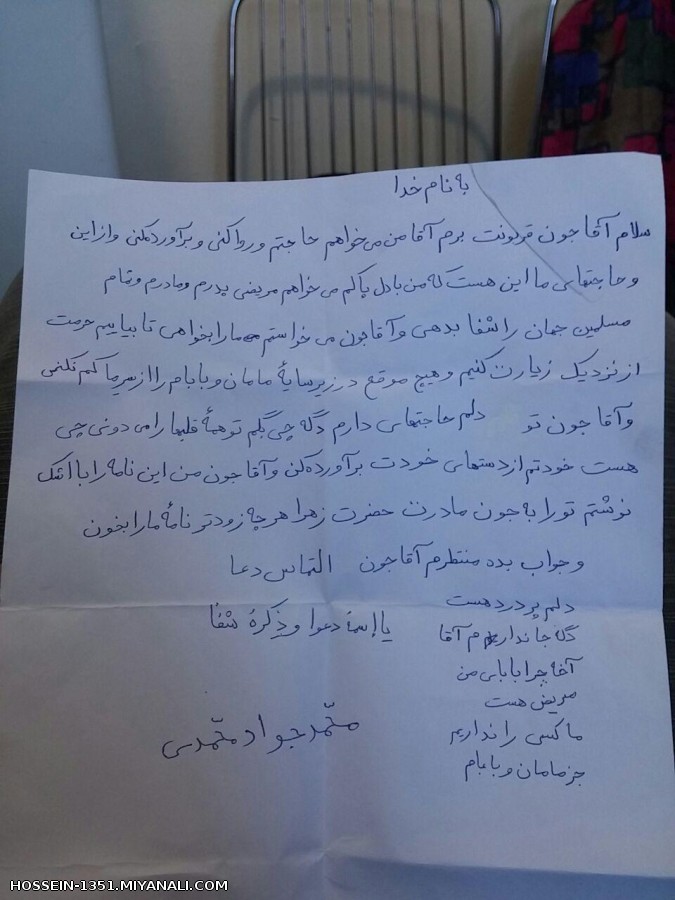 به نام خدا
سلام آقا جون قربونت برم آقا من می‌خواهم حاجتم و روا کنی و برآورده کنی و از این
و حاجتهای ما این هست که من با دل پاکم می‌خواهم مریضی پدرم و مادرم و تمام
مسلمین جهان را شفا بدهی و آقا جون می خواستم ما را بخواهی تا بیاییم حرمت
از نزدیک زیارت کنیم و هیچ موقع در زیر سایهٔ مامان و بابام را از سر ما کم نکنی
و آقا جون تو دلم حاجتهای دارم دگه چی بگم تو همهٔ قلبها را می دونی چی
هست خودتم از دستهای خودت برآورده کن و آقا جون من این نامه را با اشک
نوشتم تو را به جون مادرت حضرت زهرا هر چه زودتر نامهٔ ما را بخون
و جواب بده منتظرم آقا جون التماس دعا
دلم پر درد هست
یا اسمهٔ دعوا و ذکرهٔ شفا
دگه جا ندارم آقا
آخه چرا بابای من
مریض هست
ما کسی را نداریم
جز مامان و بابام
محمد جواد محمدی
HOSSEIN-1351.MIYANALI.COM